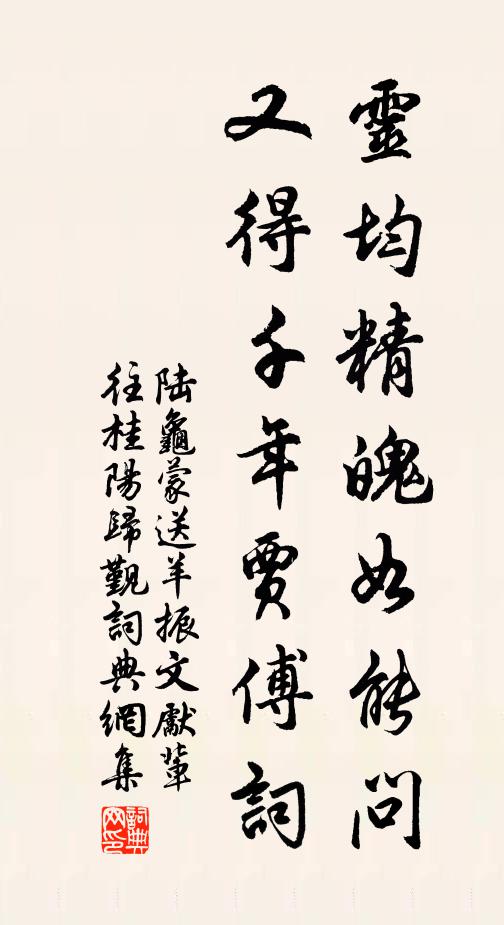 靈均精魄如能問
又得千年賈傅詞
陸龜蒙送羊振文獻輩
往桂陽歸覲詞典網集
詞典
网印